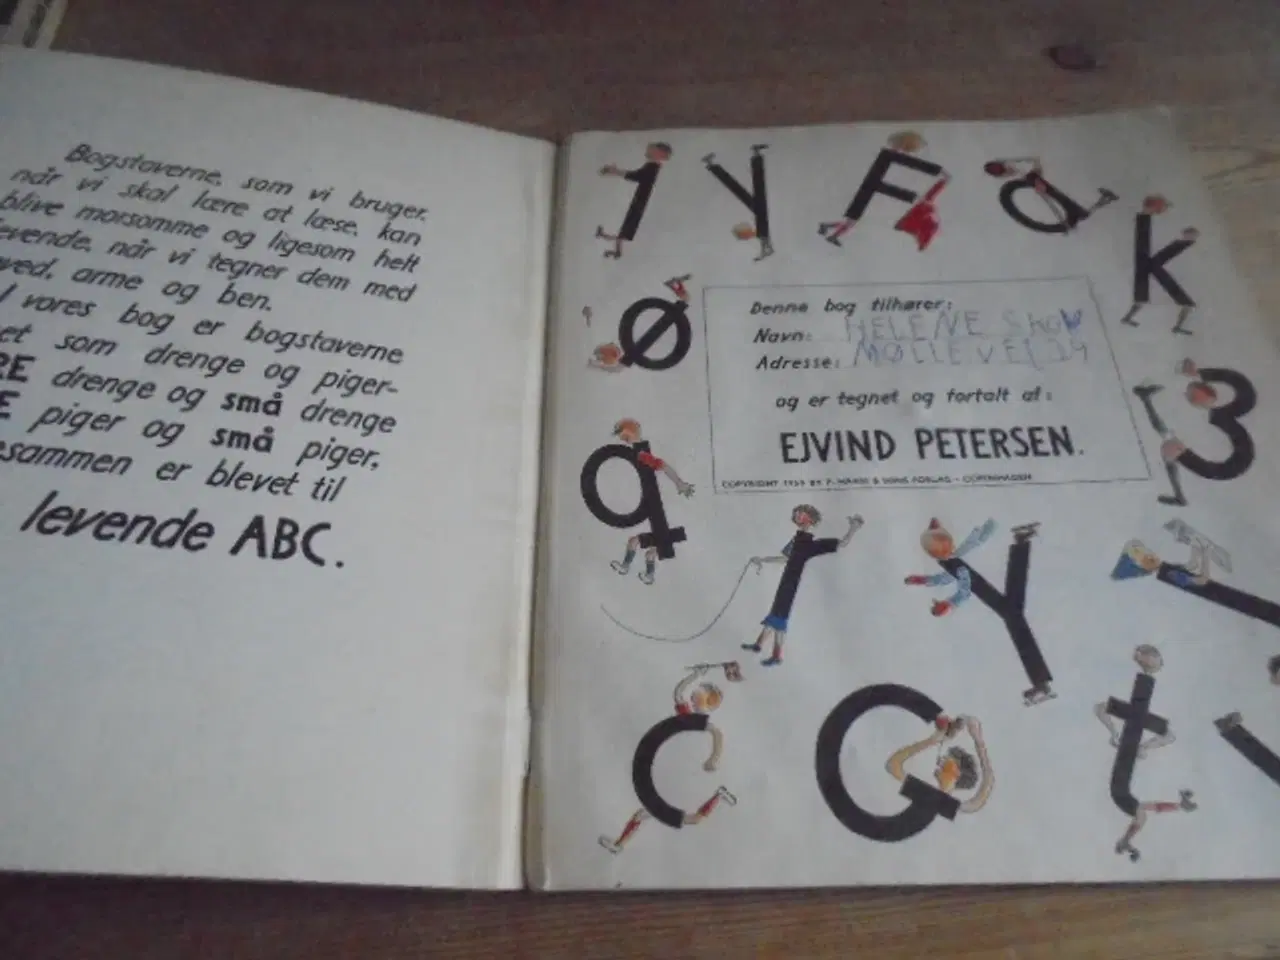 Bogstaverne, som vi bruger,
når vi skal lære at læse, kan
blive morsomme og ligesom helt
levende, når vi tegner dem med
hoved, arme og ben.
I vores bog er bogstaverne
som drenge og piger-
drenge og små drenge
piger og små piger,
er blevet til
levende ABC.
1 y F a k
ø
Denne bog tilhører:
Navn: HELENE SKOV
Adresse: MØLLEVEJ
og er tegnet og fortalt af:
EJVIND PETERSEN.
COPYRIGHT BY & SØNS FORLAG - COPENHAGEN
3
q r Y
c G t